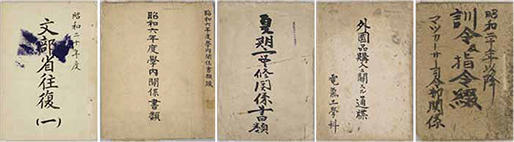 昭和二十年度
文部省往復
(一)
昭和六年度學内関係書類綴
昭和六年度學内関係書類
夏期一号修関係書類
外國品購入ニ関スル通牒
電氣工學科
昭和二十年以降
訓令&指令綴
マツカーサー司令部関係